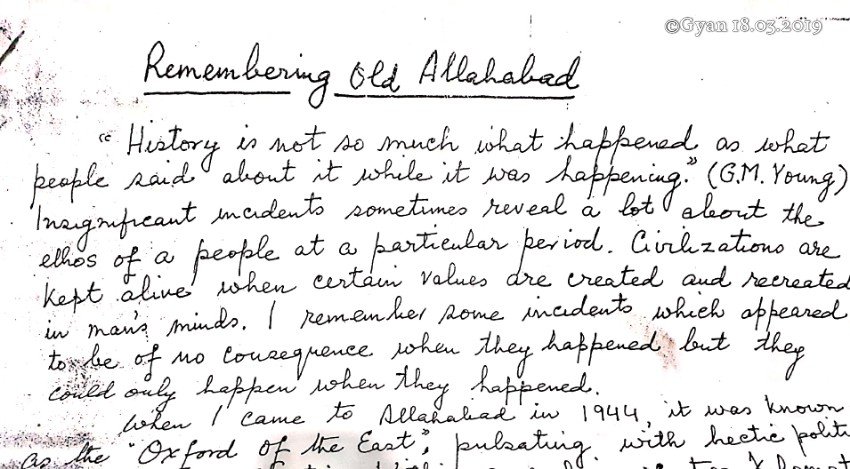 ©Gyan 18.03.2019
Remembering Old Allahabad
" History is not so much what happened as what
people said about it while it was happening." (G.M. Young)
Insignificant incidents sometimes reveal a lot about the
ethos of a people at a particular period. Civilizations are
kept alive when certain values are created and recreated
in man's minds. I remember some incidents which appeared
to be of no consequence when they happened but they
could only happen when they happened.
When I came to Allahabad in 1944, it was known
as the "Oxford of the East", pulsating with hectic politi